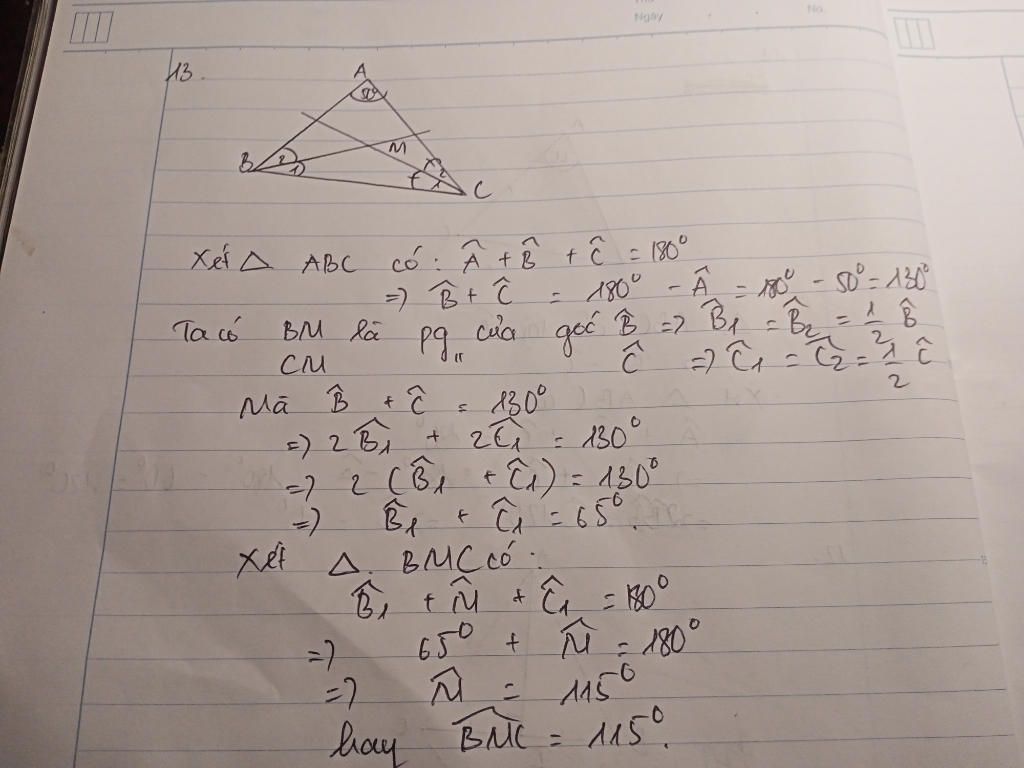 Ngày No.
13.
A
50°
B 2 1
M
2 1 C
Xét △ ABC có: Â + B̂ + Ĉ = 180°
=> B̂ + Ĉ = 180° - Â = 180° - 50° = 130°
Ta có BM là pg của góc B̂ => B̂1 = B̂2 = 1/2 B̂
CM " Ĉ => Ĉ1 = Ĉ2 = 1/2 Ĉ
Mà B̂ + Ĉ = 130°
=> 2B̂1 + 2Ĉ1 = 130°
=> 2 (B̂1 + Ĉ1) = 130°
=> B̂1 + Ĉ1 = 65°.
Xét △. BMC có:
B̂1 + M̂ + Ĉ1 = 180°
=> 65° + M̂ = 180°
=> M̂ = 115°
hay BMC̑ = 115°.